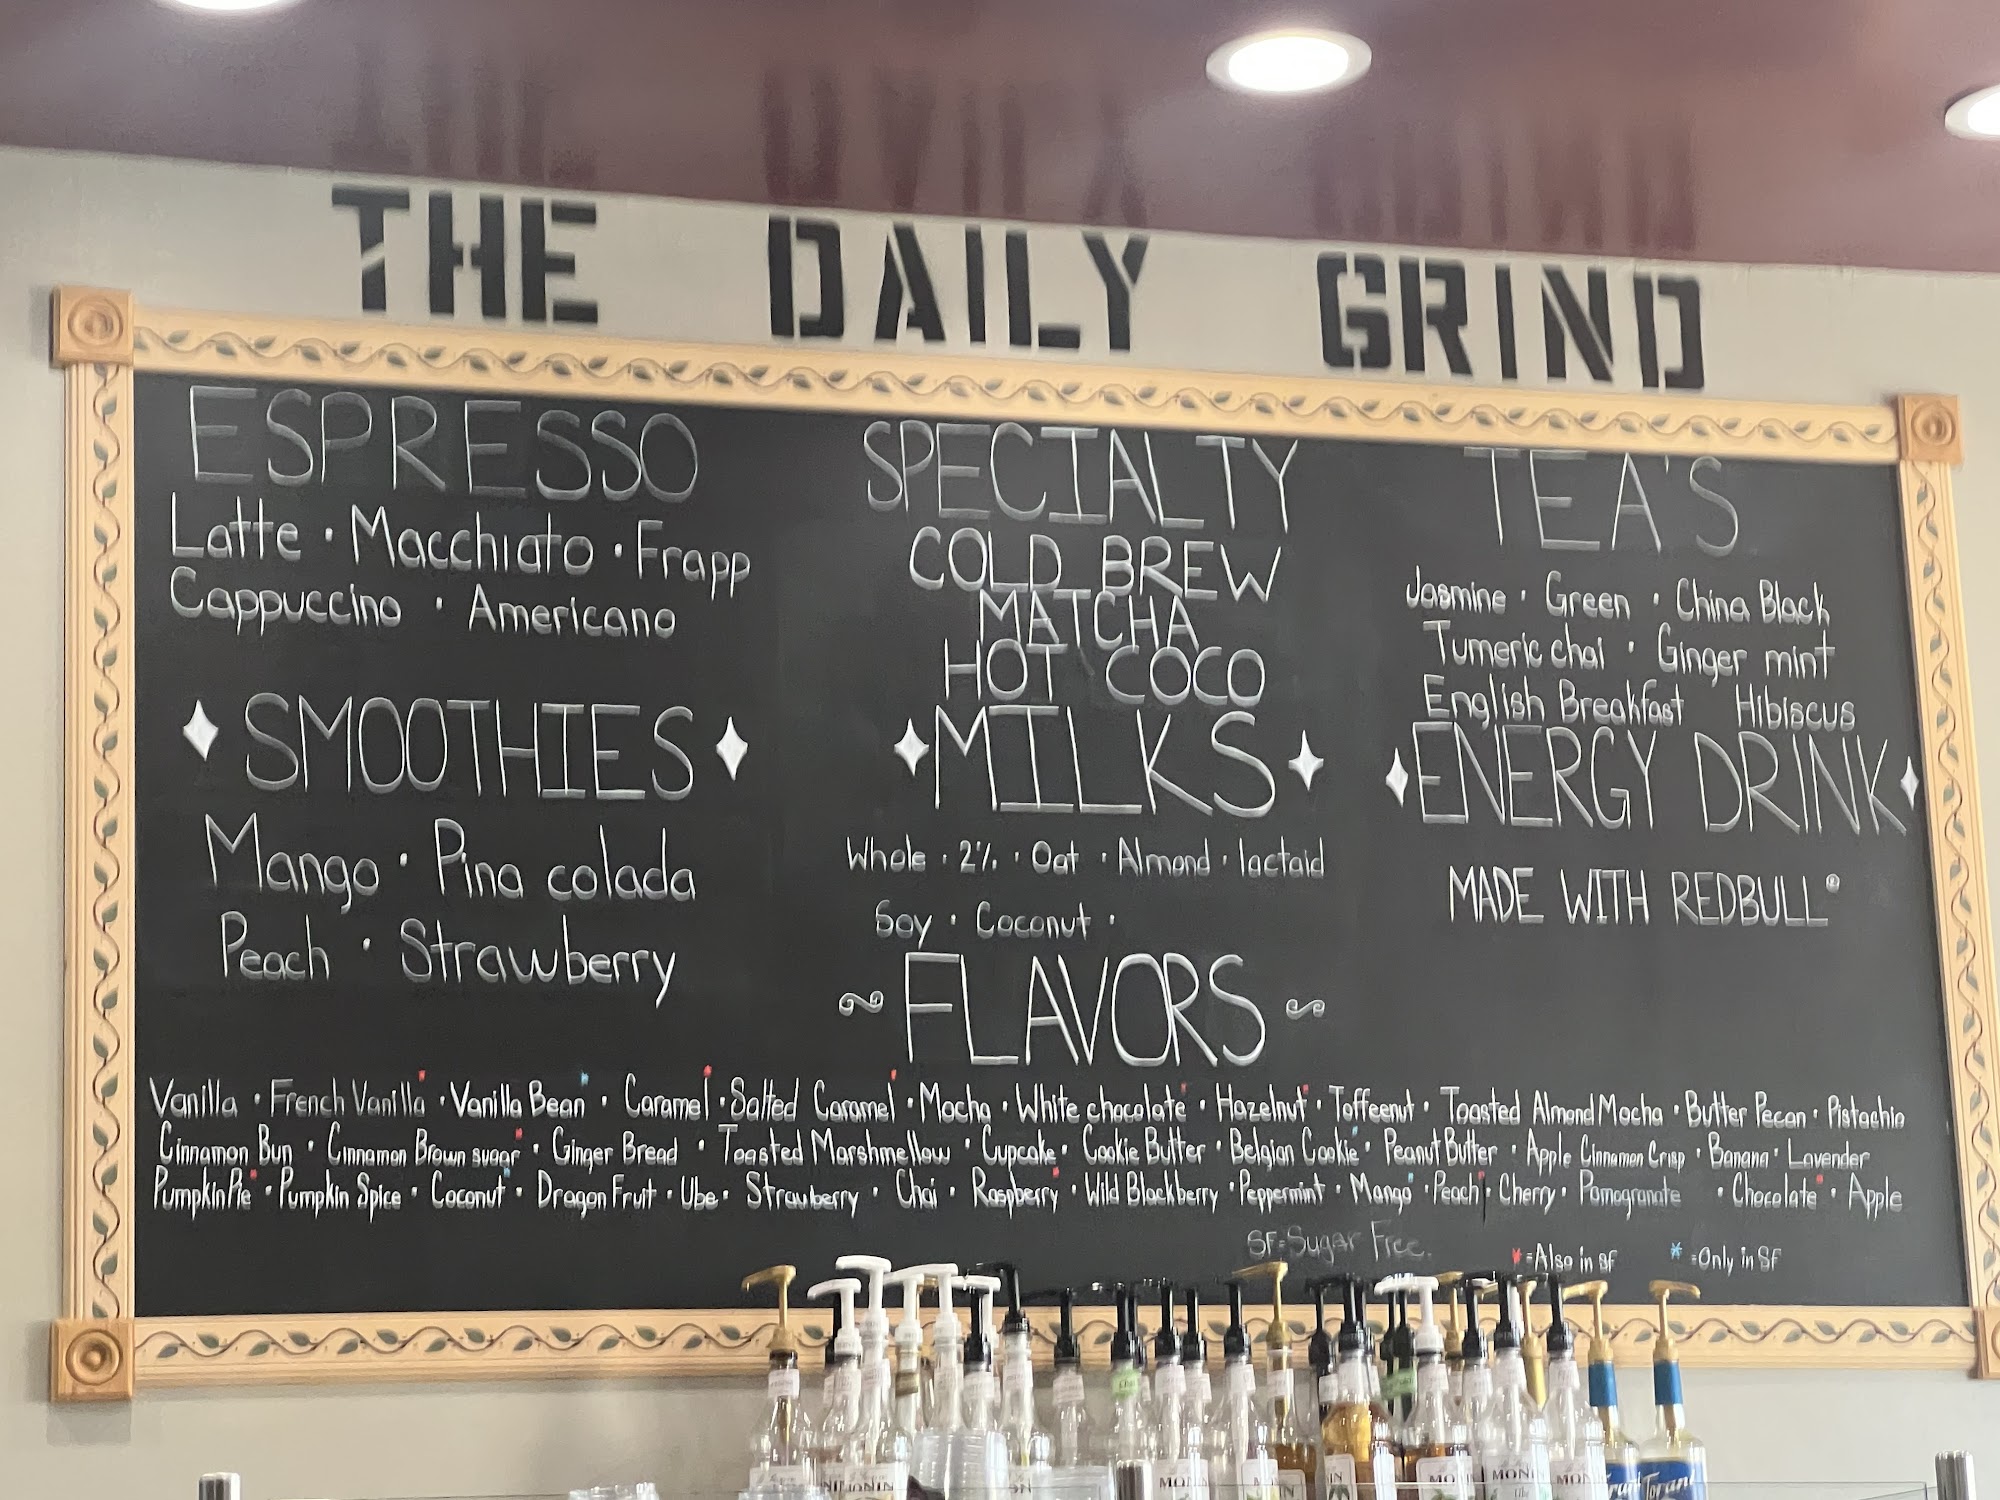 THE DAILY GRIND
ESPRESSO
Latte · Macchiato · Frapp
Cappuccino · Americano
SMOOTHIES
Mango · Pina colada
Peach · Strawberry
SPECIALTY
COLD BREW
MATCHA
HOT COCO
MILKS
Whole · 2% · Oat · Almond · lactaid
Soy · Coconut ·
TEA'S
Jasmine · Green · China Black
Tumeric chai · Ginger mint
English Breakfast Hibiscus
ENERGY DRINK
MADE WITH REDBULL®
FLAVORS
Vanilla · French Vanilla* · Vanilla Bean* · Caramel* · Salted Caramel* · Mocha · White chocolate* · Hazelnut* · Toffeenut · Toasted Almond Mocha · Butter Pecan · Pistachio
Cinnamon Bun · Cinnamon Brown sugar* · Ginger Bread · Toasted Marshmellow · Cupcake · Cookie Butter · Belgian Cookie* · Peanut Butter · Apple Cinnamon Crisp · Banana · Lavender
Pumpkin Pie* · Pumpkin Spice · Coconut* · Dragon Fruit · Ube · Strawberry · Chai · Raspberry* · Wild Blackberry · Peppermint · Mango* · Peach* · Cherry · Pomogranate · Chocolate* · Apple
SF=Sugar Free.
* =Also in SF * =Only in SF
MONIN
Torani